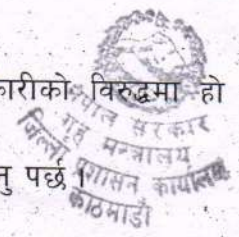 कारीको विरुद्धमा हो
नु पर्छ ।
नेपाल सरकार
गृह मन्त्रालय
जिल्ला प्रशासन कार्यालय
काठमाडौं